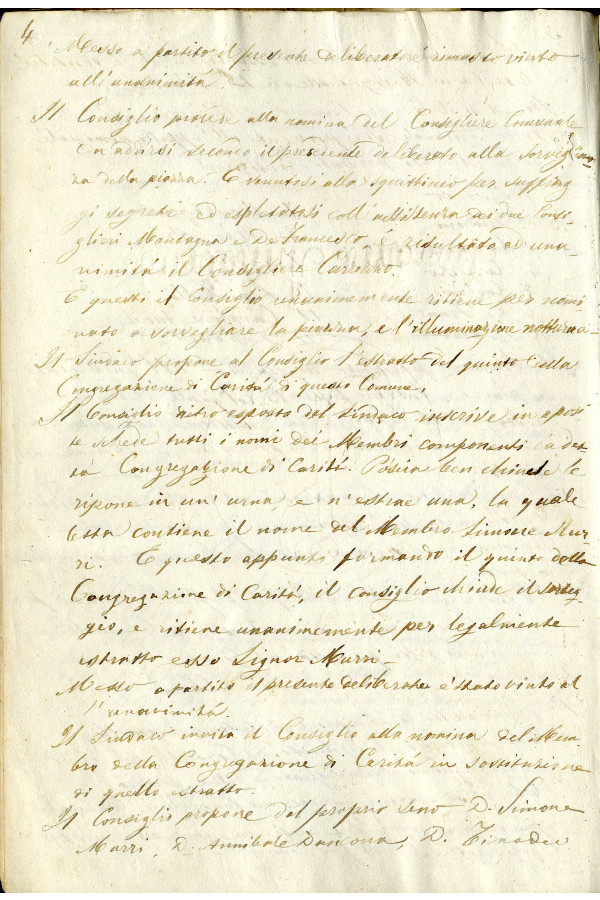 4
Messo a partito il presente deliberato è rimasto vinto
all'unanimità.
Il Consiglio procede alla nomina del Consigliere Comunale
da addirsi secondo il precedente deliberato alla sorveglian
za della piazza. E venutosi allo squittinio per suffrag
gi segreti ed espletatosi coll'assistenza dei due Consi
glieri Montagna e De Francesco è risultato ad una
nimità il Consigliere Carrozzo.
E questi il Consiglio unanimemente ritiene per nomi
nato a sorvegliare la piazza, e l'illuminazione notturna.
Il Sindaco propone al Consiglio l'estratto del quinto della
Congregazione di Carità di questo Comune.
Il Consiglio dietro esposto del Sindaco inscrive in aposi
te schede tutti i nomi dei Membri componenti la det
ta Congregazione di Carità. Poscia ben chiuse le
ripone in un'urna, e n'estrae una, la quale
letta contiene il nome del Membro Simone Mur
ri. E questo appunto formando il quinto della
Congregazione di Carità, il Consiglio chiude il sorteg
gio, e ritiene unanimemente per legalmente
estratto esso Signor Murri.
Messo a partito il presente deliberato è stato vinto al
l'unanimità.
Il Sindaco invita il Consiglio alla nomina del Mem
bro della Congregazione di Carità in sostituzione
di quello estratto.
Il Consiglio propone dal proprio seno D. Simone
Murri, D. Annibale Dancona, D.